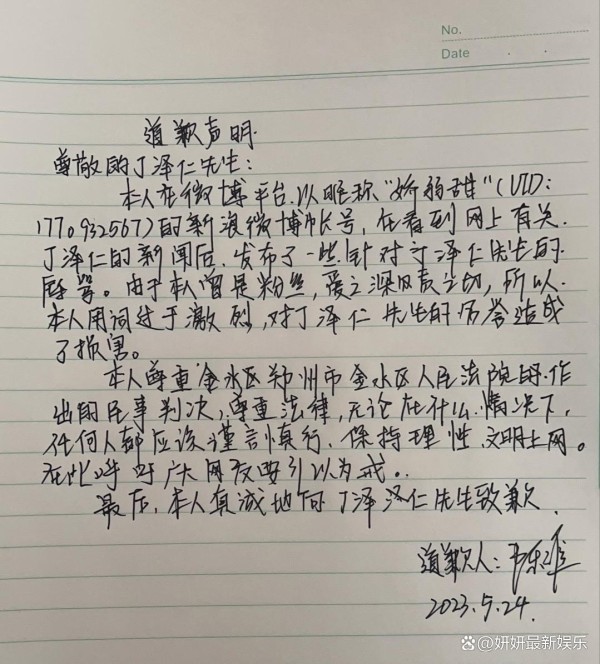 No.
Date
道歉声明
尊敬的丁泽仁先生：
本人在微博平台以昵称“娇弱甜”（UID:
1770932567）的新浪微博帐号，在看到网上有关
丁泽仁的新闻后，发布了一些针对丁泽仁先生的
辱骂。由于本人曾是粉丝，爱之深则责之切，所以
本人用词过于激烈，对丁泽仁先生的名誉造成
了损害。
本人尊重金水区郑州市金水区人民法院所作
出的民事判决，尊重法律，无论在什么情况下，
任何人都应该谨言慎行，保持理性，文明上网。
在此呼吁广大网友要引以为戒。
最后，本人真诚地向丁泽泽仁先生致歉
道歉人：
2023.5.24.
@妍妍最新娱乐